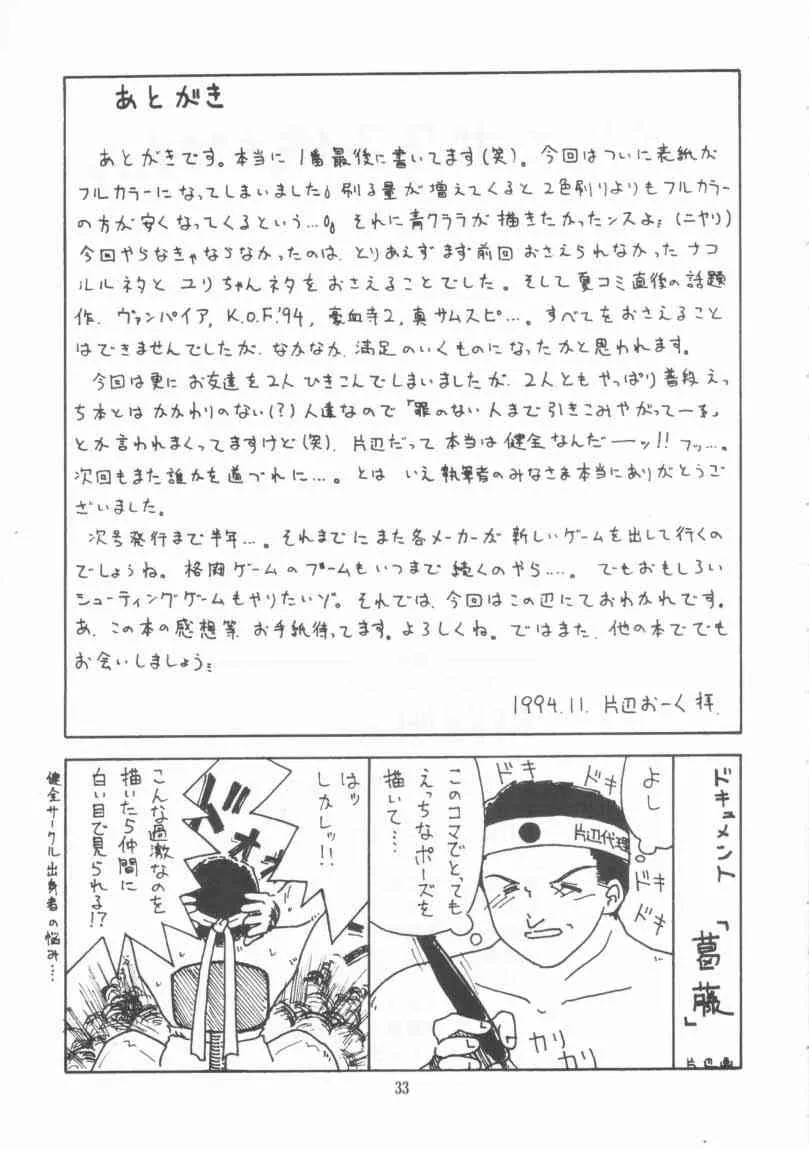 あとがき
あとがきです。本当に1番最後に書いてます(笑)。今回はついに表紙が
フルカラーになってしまいました。刷る量が増えてくると2色刷りよりもフルカラー
の方が安くなってくるという…。それに青クララが描きたかったンスよ(ニヤリ)
今回やらなきゃならなかったのは、とりあえずまず前回おさえられなかったナコ
ルルネタとユリちゃんネタをおさえることでした。そして夏コミ直後の話題
作、ヴァンパイア, K.O.F.'94, 豪血寺2, 真サムスピ…。すべてをおさえること
はできませんでしたが、なかなか、満足のいくものになったかと思われます。
今回は更にお友達を2人ひきこんでしまいましたが、2人ともやっぱり普段えっ
ち本とはかかわりのない(?)人達なので「罪のない人まで引きこみやがってーっ」
とか言われまくってますけど(笑)、片辺だって本当は健全なんだーーッ!!フッ…。
次回もまた誰かを道づれに…。とはいえ執筆者のみなさま本当にありがとうご
ざいました。
次号発行まで半年…。それまでにまた各メーカーが新しいゲームを出して行くの
でしょうね。格闘ゲームのブームもいつまで続くのやら……。でもおもしろい
シューティングゲームもやりたいゾ。それでは、今回はこの辺にておわかれです。
あ、この本の感想等、お手紙待ってます。よろしくね。ではまた、他の本ででも
お会いしましょう
1994.11. 片辺おーく 拝.
ドキュメント「葛藤」
よし
ドキ
ドキ
片辺代理
このコマでとっても
えっちなポーズを
描いて…
ドキ
ドキ
カリ
カリ
はッ
しかしッ!!
こんな過激なのを
描いたら仲間に
白い目で見られる!?
健全サークル出身者の悩み…
33